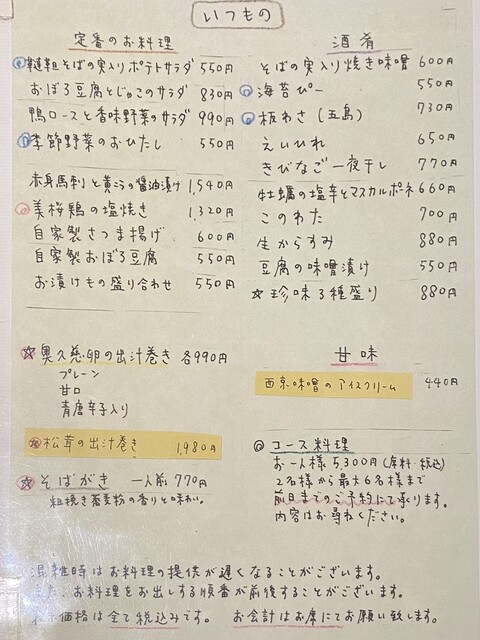 いつもの
定番のお料理
韃靼そばの実入りポテトサラダ 550円
おぼろ豆腐とじゃこのサラダ 830円
鴨ロースと香味野菜のサラダ 990円
季節野菜のおひたし 550円
赤身馬刺と黄ニラの醤油漬け 1,540円
美桜鶏の塩焼き 1,320円
自家製さつま揚げ 600円
自家製おぼろ豆腐 550円
お漬けもの盛り合わせ 550円
☆奥久慈卵の出汁巻き 各990円
プレーン
甘口
青唐辛子入り
☆松茸の出汁巻き 1,980円
☆そばがき 一人前 770円
粗挽き蕎麦粉の香りと味わい。
酒肴
そばの実入り焼き味噌 600円
海苔ぴー 550円
板わさ(五島) 730円
えいひれ 650円
きびなご一夜干し 770円
牡蠣の塩辛とマスカルポーネ 660円
このわた 700円
生からすみ 880円
豆腐の味噌漬け 550円
☆珍味3種盛り 880円
甘味
西京味噌のアイスクリーム 440円
◎コース料理
お一人様5,300円(席料・税込)
2名様から最大6名様まで
前日までのご予約にて承ります。
内容はお尋ねください。
混雑時はお料理の提供が遅くなることがございます。
また、お料理をお出しする順番が前後することがございます。
価格は全て税込みです。 お会計はお席にてお願い致します。